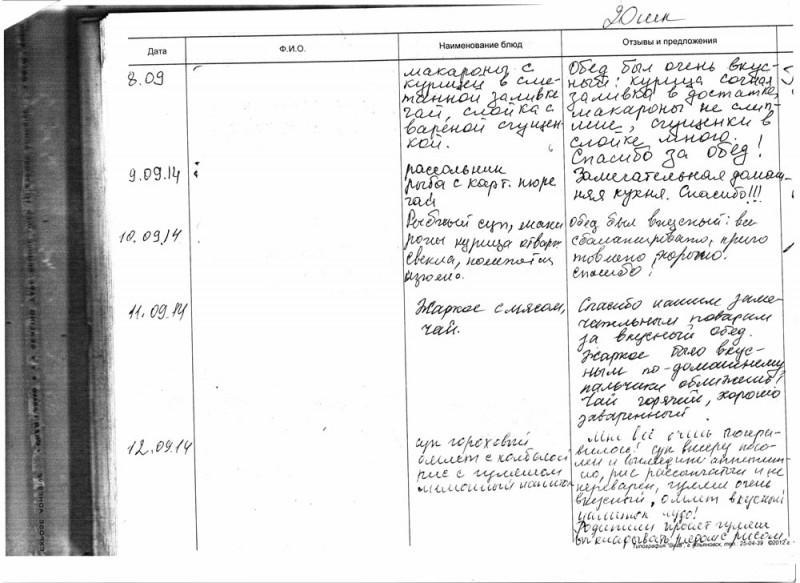 20 шк
Дата Ф.И.О. Наименование блюд Отзывы и предложения
8.09
макароны с
курицей в сме-
танной заливке
чай, слойка с
варёной сгущен-
кой.
Обед был очень вкус-
ный: курица сочная
заливка в достатке,
макароны не слип-
шие, сгущенки в
слойке много.
Спасибо за обед!
9.09.14
рассольник
рыба с карт. пюре
чай
Замечательная домаш-
няя кухня. Спасибо!!!
10.09.14
Рыбный суп, мака
роны курица отварн
свекла,
Обед был вкусный: все
сбалансировано, приго
товлено хорошо.
спасибо!
11.09.14
Жаркое с мясом,
чай.
Спасибо нашим заме-
чательным поварам
за вкусный обед.
Жаркое было вкус-
ным по-домашнему
пальчики оближешь!
Чай горячий, хорошо
заваренный.
12.09.14
суп гороховый
омлет с колбасой
рис с гуляшом
лимонный напиток
Мне всё очень понра-
вилось! Суп в меру посо-
лен и выглядит аппетит-
но, рис рассыпчатый и не
переварен, гуляш очень
вкусный, омлет вкусный
напиток чудо!
Родители просят гуляш
выкладывать рядом с рисом.
Типография г. Ульяновск, тел. 25-04-39 ©2012 г.